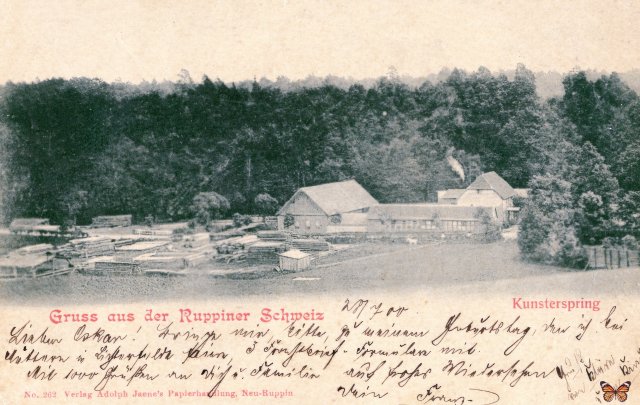 Gruss aus der Ruppiner Schweiz
Kunsterspring
28/7 00
Lieben Oskar! Bringe mir, bitte, zu meinem Geburtstag, den ich bei
Müttern u. feiern kann, 3 Formulare mit.
Mit 1000 Grüßen an Dich u. Familie auf frohes Wiedersehen
Dein Franz
No. 262 Verlag Adolph Jaene's Papierhandlung, Neu-Ruppin